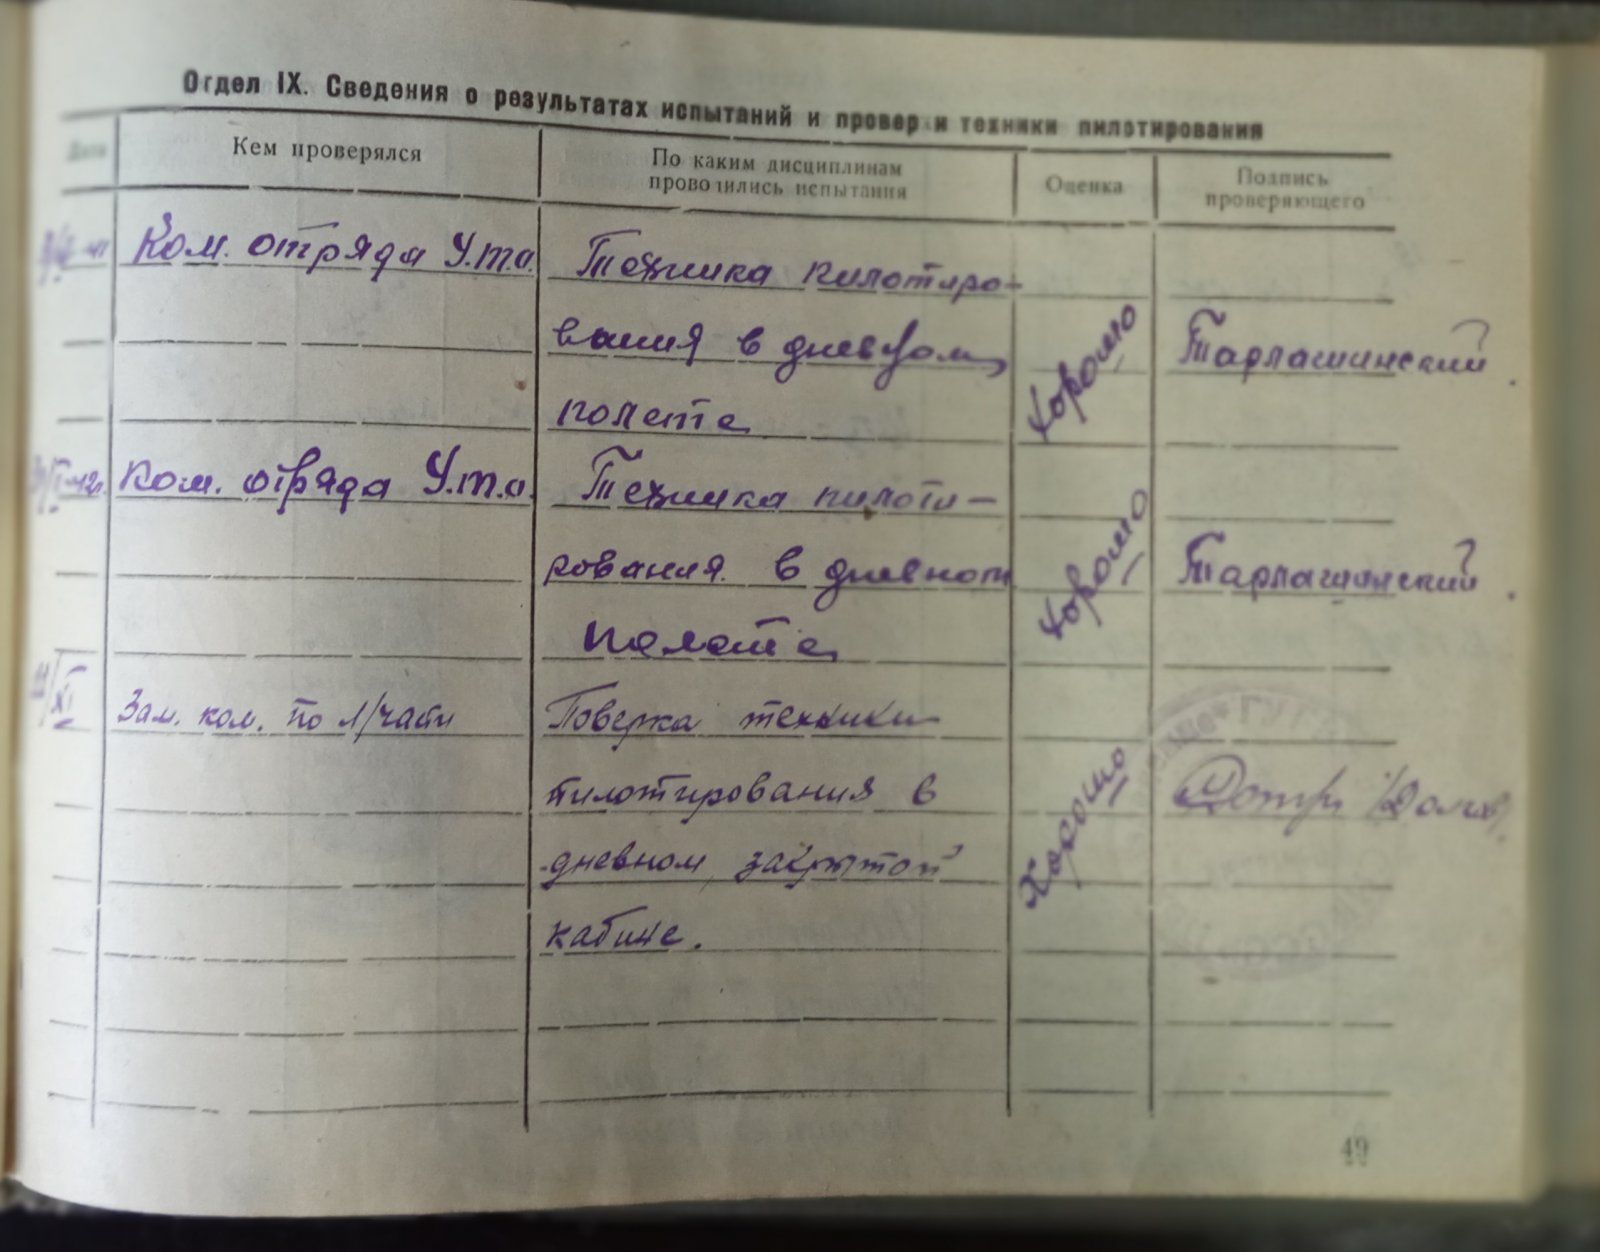 Отдел IX. Сведения о результатах испытаний и проверки техники пилотирования
Дата
Кем проверялся
По каким дисциплинам
проводились испытания
Оценка
Подпись
проверяющего
Ком. отряда У.т.о.
Техника пилотиро-
вания в дневном
полете
Хорошо
Тарлашинский
Ком. отряда У.т.о.
Техника пилоти-
рования в дневном
полете
Хорошо
Тарлашинский
XI
Зам. ком. по л/части
Поверка техники
пилотирования в
дневном, закрытой
кабине.
Хорошо
49